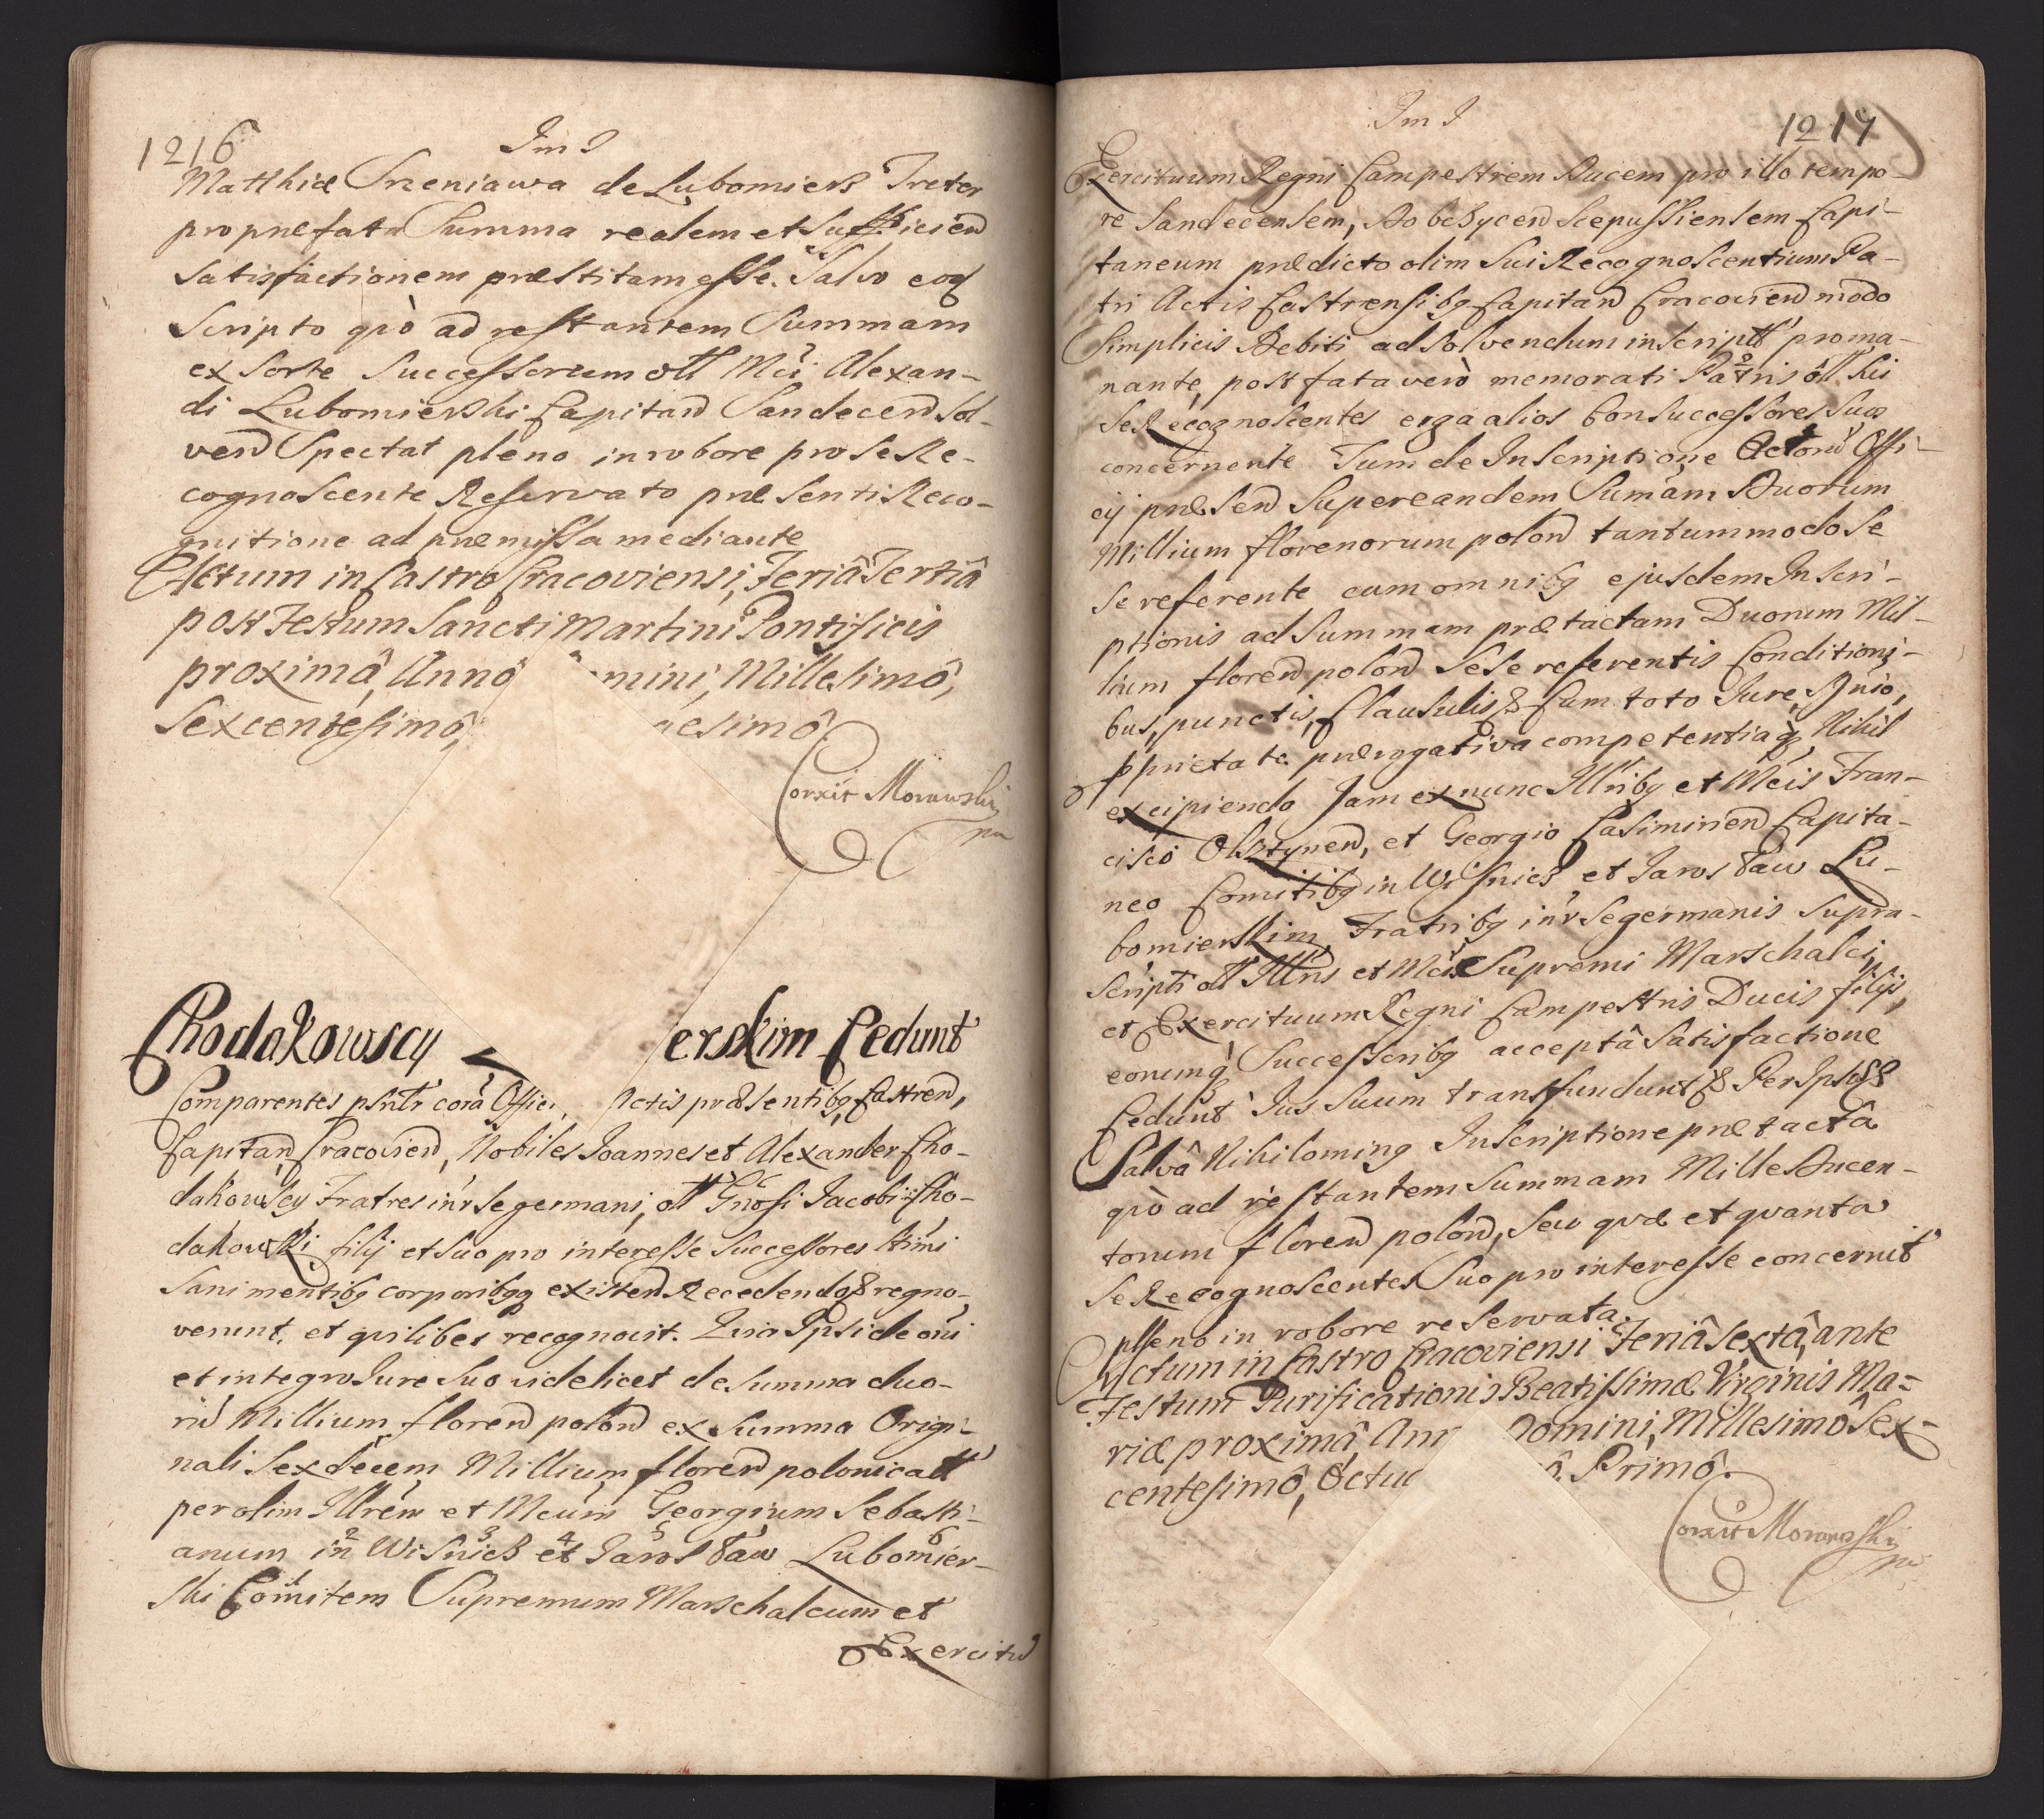 1216
Im I
Matthiæ Srzeniawa de Lubomierz Treter
pro præfata Summa realem et sufficien
satisfactionem præstitam esse. Salvo eoq
Scripto quò ad restantem Summam
ex sorte Successorum oll Mci Alexan-
di Lubomierski Capitan Sandecen sol-
ven Spectat pleno in robore pro se Re-
cognoscente Reservato præsenti Reco-
gnitione ad præmissa mediante
Actum in Castro Cracoviensi, Feriâ Tertiâ
post Festum Sancti Martini Pontificis
proximâ, Annô mini, Millesimô,
Sexcentesimô, gesimô
Corxit Morawski
mp
Chodakowscy erskim Cedunt
Comparentes psntr corã Offici Actis præsentibq Castren,
Capitan Cracovien, Nobiles Joannes et Alexander Cho-
dakowscy Fratres intr se germani, oll Gnosi Jacobi Cho-
dakowski filij et suo pro interesse Successores ltimi
Sani mentibq corporibqq existen Recedendo & regno-
verunt, et quilibet recognovit. Quia Ipsi de oni
et integro Jure Suo videlicet de Summa duo-
rũ Millium floren polon ex Summa Origi-
nali Sexdecem Millium floren polonicall
per olim Illrem et Mcum Georgium Sebasti-
anum in Wisnicz et Jaroslaw Lubomier-
ski Comitem Supremum Marschalcum et
Exercitu
Im I
1217
Exercituum Regni Campestrem Ducem pro illo tempo-
re Sandecensem, Dobczycen Scepussiensem Capi-
taneum prædicto olim Sui Recognoscentium Pa-
tri Actis Castrensibq Capitan Cracovien modo
Simplicis Debiti ad solvendum inscript proma-
nante, post fata verò memorati Patris oll sui
se Recognoscentes erga alios Consuccessores Suos
concernente Tum de Inscriptione Actorũ Offi-
cij præsen Super eandem Sumam Duorum
Millium florenorum polon tantummodo se
se referente cum omnibq ejusdem Inscri-
ptionis ad Summam prætactam Duorum Mil-
lium floren polon sese referentis Conditioni-
bus, punctis, Clausulis & Cum toto Jure, Dnio,
pprietate prærogativa competentiaq, Nihil
excipiendo Jam ex nunc Illribq et Mcis Fran-
cisco Olsztynen, et Georgio Casimirien Capita-
neo Comitibq in Wisnicz et Jaroslaw Lu-
bomierskim, Fratribq intr se germanis supra-
scripti oll Illris et Mci Supremi Marschalci,
et Exercituum Regni Campestris Ducis filijs,
eorumq Successoribq acceptâ satisfactione
Cedunt Jus Suum transfundunt & Per Ipsos &
Salvâ Nihilominq Inscriptione prætactâ
quò ad restantem Summam Mille Ducen-
torum floren polon, seu quæ et quanta
se Recognoscentes Suo pro interesse concernit
pleno in robore reservata.
Actum in Castro Cracoviensi Feriâ Sextâ, ante
Festum Purificationis Beatissimæ Virginis Ma-
riæ proximâ, Ann Domini, Millesimô Sex-
centesimô, Octua ô. Primô.
Corxit Morawski
mp